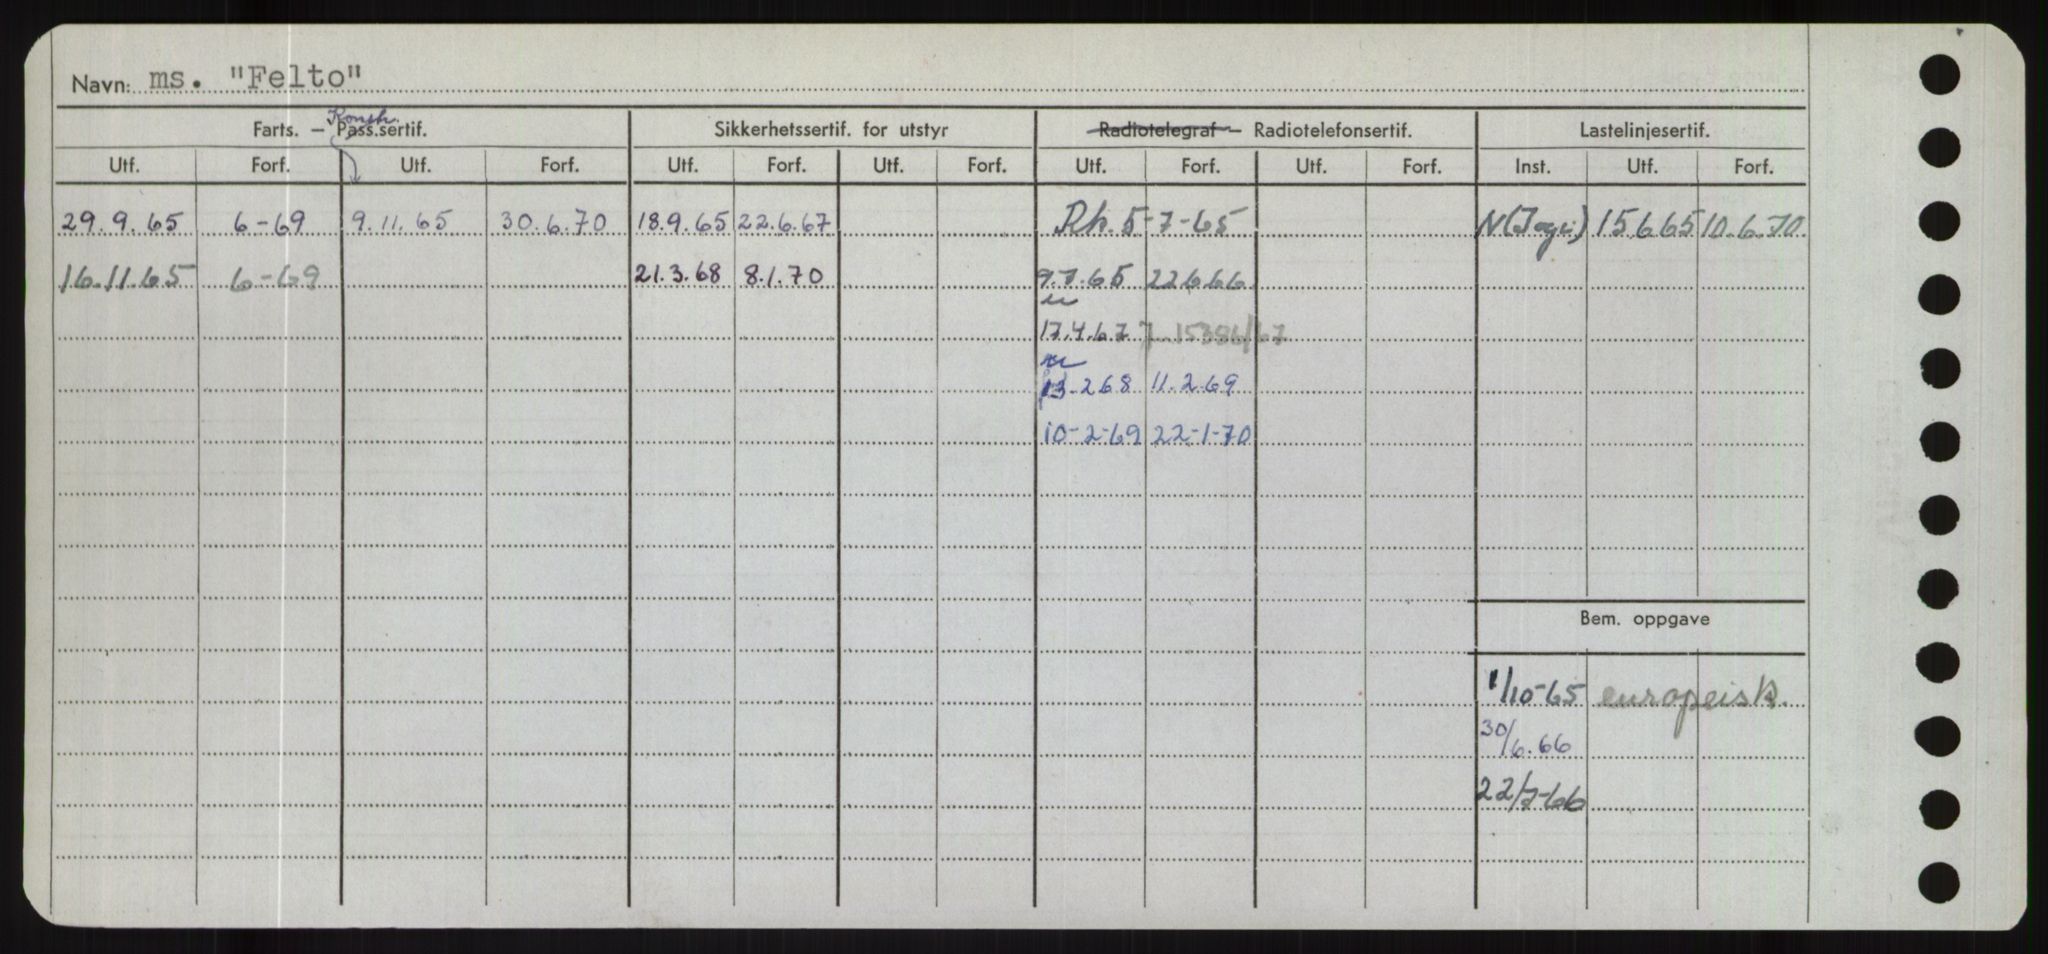 Navn: ms. "Felto"
Konstr.
Farts. – Pass.sertif. Sikkerhetssertif. for utstyr Radiotelegraf – Radiotelefonsertif. Lastelinjesertif.
Utf. Forf. Utf. Forf. Utf. Forf. Utf. Forf. Utf. Forf. Utf. Forf. Inst. Utf. Forf.
29.9.65 6-69 9.11.65 30.6.70 18.9.65 22.6.67 Rh. 5-7-65 N 15.6.65 10.6.70
16.11.65 6-69 21.3.68 8.1.70 9.7.65 22.6.66
17.4.67 J. 15386/67
13.2.68 11.2.69
10-2-69 22-1-70
Bem. oppgave
1/10-65 europeisk.
30/6.66
22/7-66